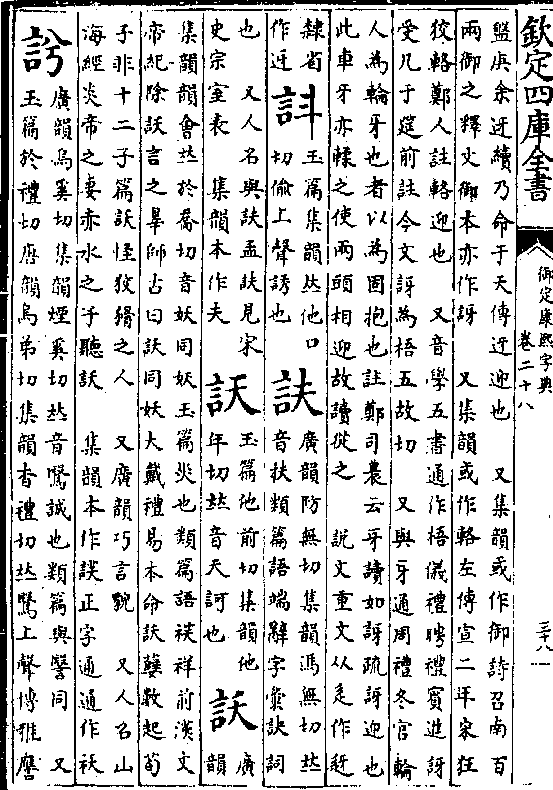 欽定四庫全書
御定康熙字典
卷二十八
三十八
盤庚余迓續乃命于天傳迓迎也　又集韻或作御詩召南百
兩御之釋文御本亦作訝　又集韻或作輅左傳宣二年宋狂
狡輅鄭人註輅迎也　又音學五書通作梧儀禮聘禮賓進訝
受几于筵前註今文訝為梧五故切　又與牙通周禮冬官輪
人為輪牙也者以為固抱也註鄭司農云牙讀如訝疏訝迎也
此車牙亦輮之使兩頭相迎故讀從之　說文重文从辵作迓
隸省
作迓　䚵玉篇集韻𠀤他口
切偷上聲誘也　䚰廣韻防無切集韻馮無切𠀤
音扶類篇語端辭字彙訣詞
也　又人名與䚰孟䚰見宋
史宗室表　集韻本作夫　䚶玉篇他前切集韻他
年切𠀤音天訶也　訞廣
韻
集韻韻會𠀤於喬切音妖同妖玉篇災也類篇語祅祥前漢文
帝紀除訞言之辠師古曰訞同妖大戴禮易本命訞孽數起荀
子非十二子篇訞怪狡猾之人　又廣韻巧言貌　又人名山
海經炎帝之妻赤水之子聽訞　集韻本作䛂正字通通作祅
䚷廣韻烏奚切集韻煙奚切𠀤音鷖誠也類篇與譩同　又
玉篇於禮切唐韻烏弟切集韻杳禮切𠀤鷖上聲博雅譍